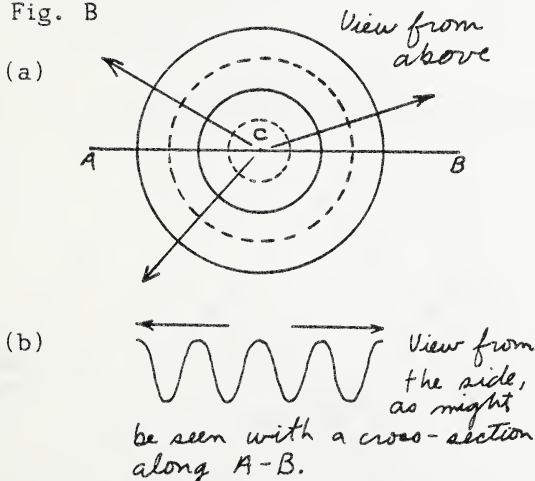 Fig. B
View from
above
(a)
C
A
B
(b)
View from
the side,
as might
be seen with a cross-section
along A-B.